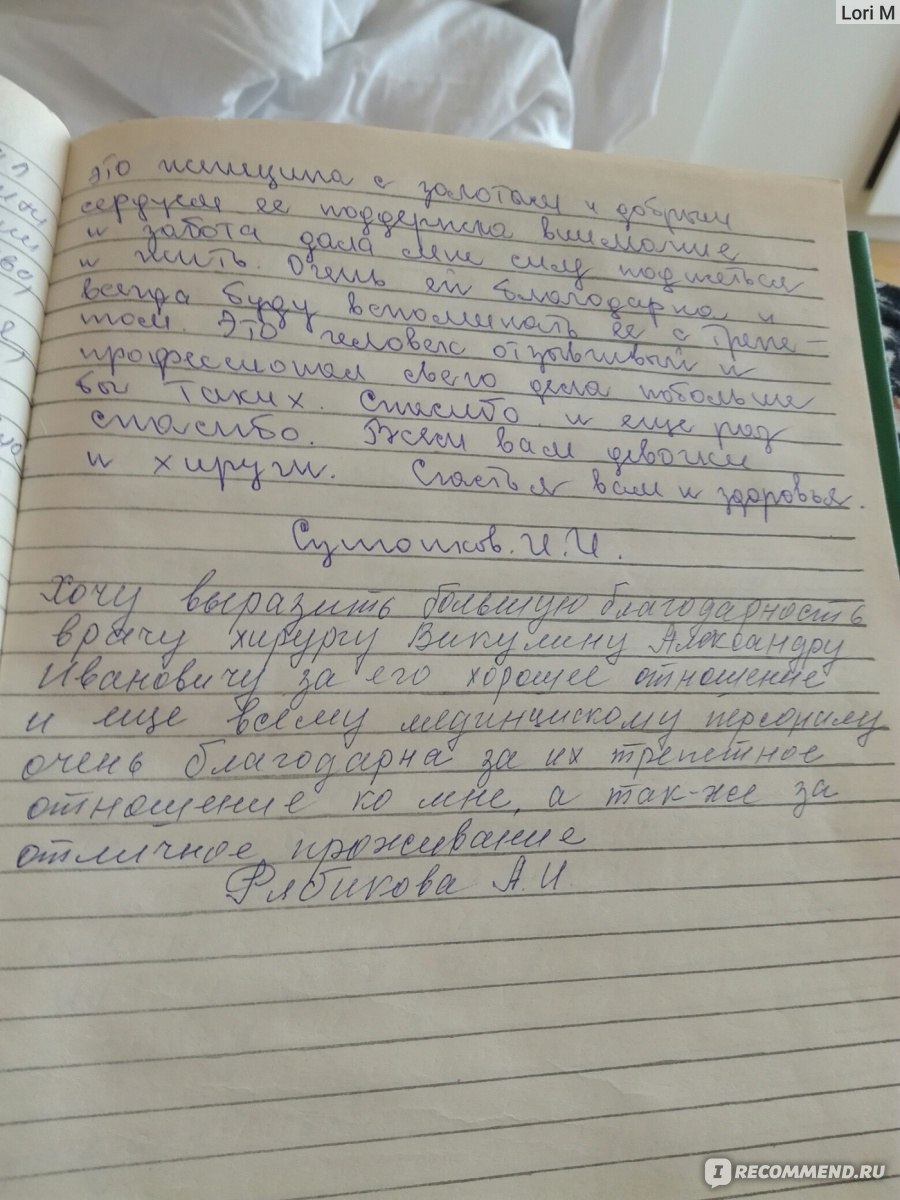 Lori M
это женщина с золотым и добрым
сердцем ее поддержка внимание
и забота дала мне силу подняться
и жить. Очень ей благодарна и
всегда буду вспоминать ее с трепе-
том. Это человек отзывчивый и
профессионал своего дела побольше
бы таких. Спасибо и еще раз
спасибо. Всем вам девочки
и хируги. Счастья вам и здоровья.
И.И.
Хочу выразить большую благодарность
врачу хирургу Викулину Александру
Ивановичу за его хорошее отношение
и еще всему мединцискому персоналу
очень благодарна за их трепетное
отношение ко мне, а так-же за
отличное проживание
Рябикова А.И.
IRECOMMEND.RU